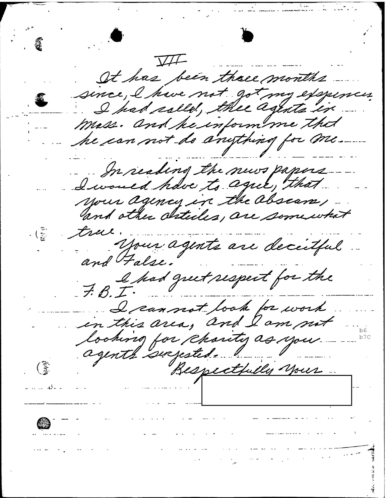 VII
It has been three months
since, I have not got my expences.
I had called, thee agents in
Mass. and he inform me that
he can not do anything for me.
In reading the news papers
I would have to agree, that
your agency in the abscam,
and other articles, are somewhat
true.
Your agents are deceitful
and False.
I had great respect for the
F.B.I.
I can not look for work
in this area, and I am not
looking for charity as you
agents sugjested.
Respectfully Yours
b6
b7C